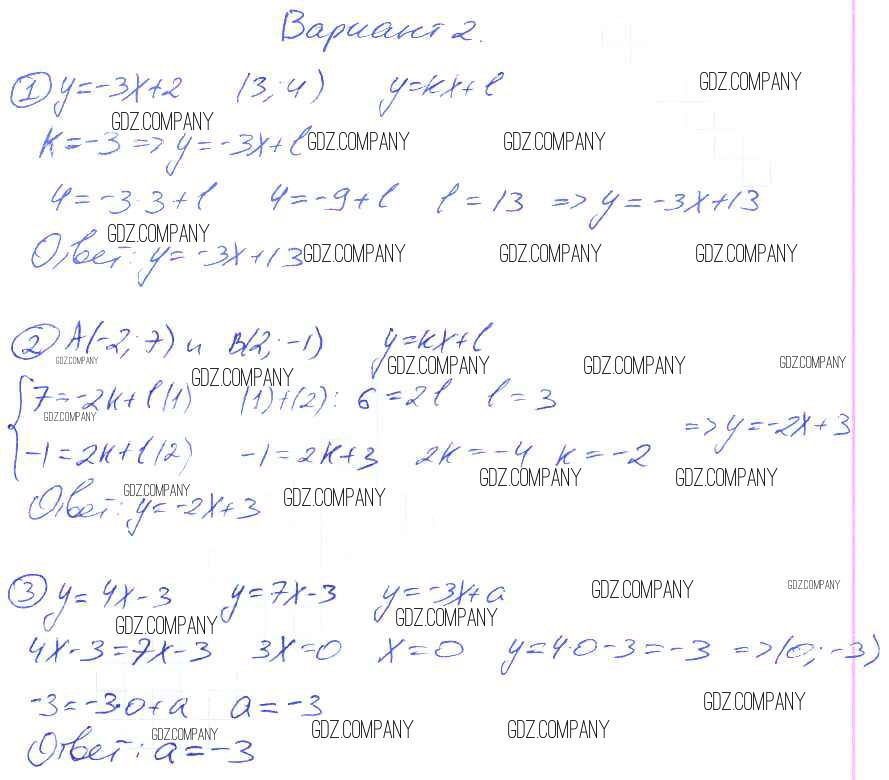 Вариант 2.
① y=-3x+2 (3; 4) y=kx+l GDZ.COMPANY
GDZ.COMPANY
k=-3 => y=-3x+l GDZ.COMPANY GDZ.COMPANY
4=-3·3+l 4=-9+l l=13 => y=-3x+13
GDZ.COMPANY
Ответ: y=-3x+13 GDZ.COMPANY GDZ.COMPANY GDZ.COMPANY
② A(-2; 7) и B(2; -1) y=kx+l
GDZ.COMPANY GDZ.COMPANY GDZ.COMPANY GDZ.COMPANY
GDZ.COMPANY
7=-2k+l (1) (1)+(2): 6=2l l=3
GDZ.COMPANY
=> y=-2x+3
-1=2k+l (2) -1=2k+3 2k=-4 k=-2
GDZ.COMPANY GDZ.COMPANY
GDZ.COMPANY GDZ.COMPANY
Ответ: y=-2x+3
③ y=4x-3 y=7x-3 y=-3x+a GDZ.COMPANY GDZ.COMPANY
GDZ.COMPANY GDZ.COMPANY
4x-3=7x-3 3x=0 x=0 y=4·0-3=-3 => (0; -3)
-3=-3·0+a a=-3 GDZ.COMPANY
GDZ.COMPANY GDZ.COMPANY GDZ.COMPANY
Ответ: a=-3